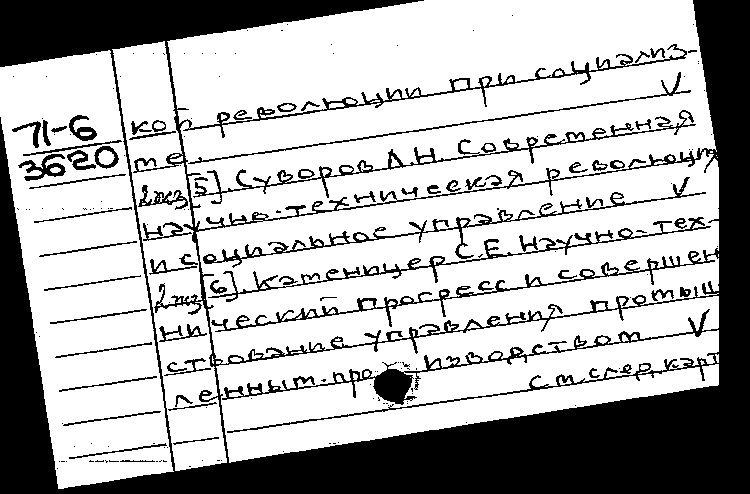 71-6
3620
кой революции при социализ-
ме. ✓
2экз [5]. Суворов Л.Н. Современная
научно-техническая революция
и социальное управление ✓
2экз [6]. Каменицер С.Е. Научно-тех-
нический прогресс и совершен
ствование управления промыш
ленным про изводством ✓
см. след. карт